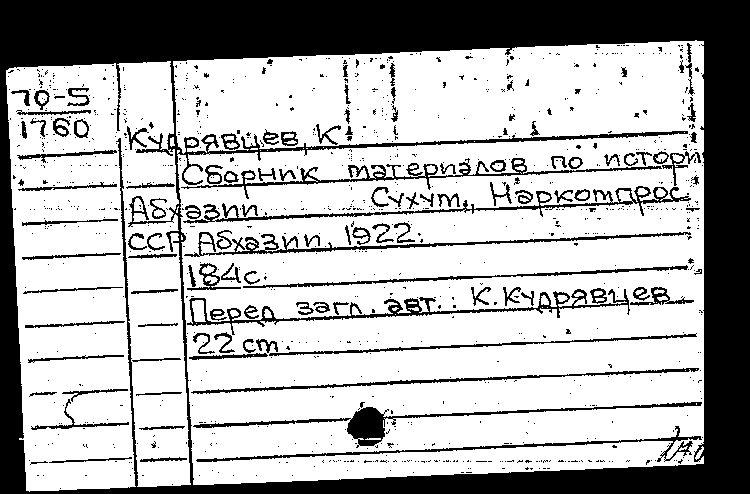 70-5
1760
Кудрявцев, К.
Сборник материалов по истори
Абхазии. Сухум, Наркомпрос
ССР Абхазии, 1922.
184с.
Перед загл. авт.: К. Кудрявцев
22 cm.